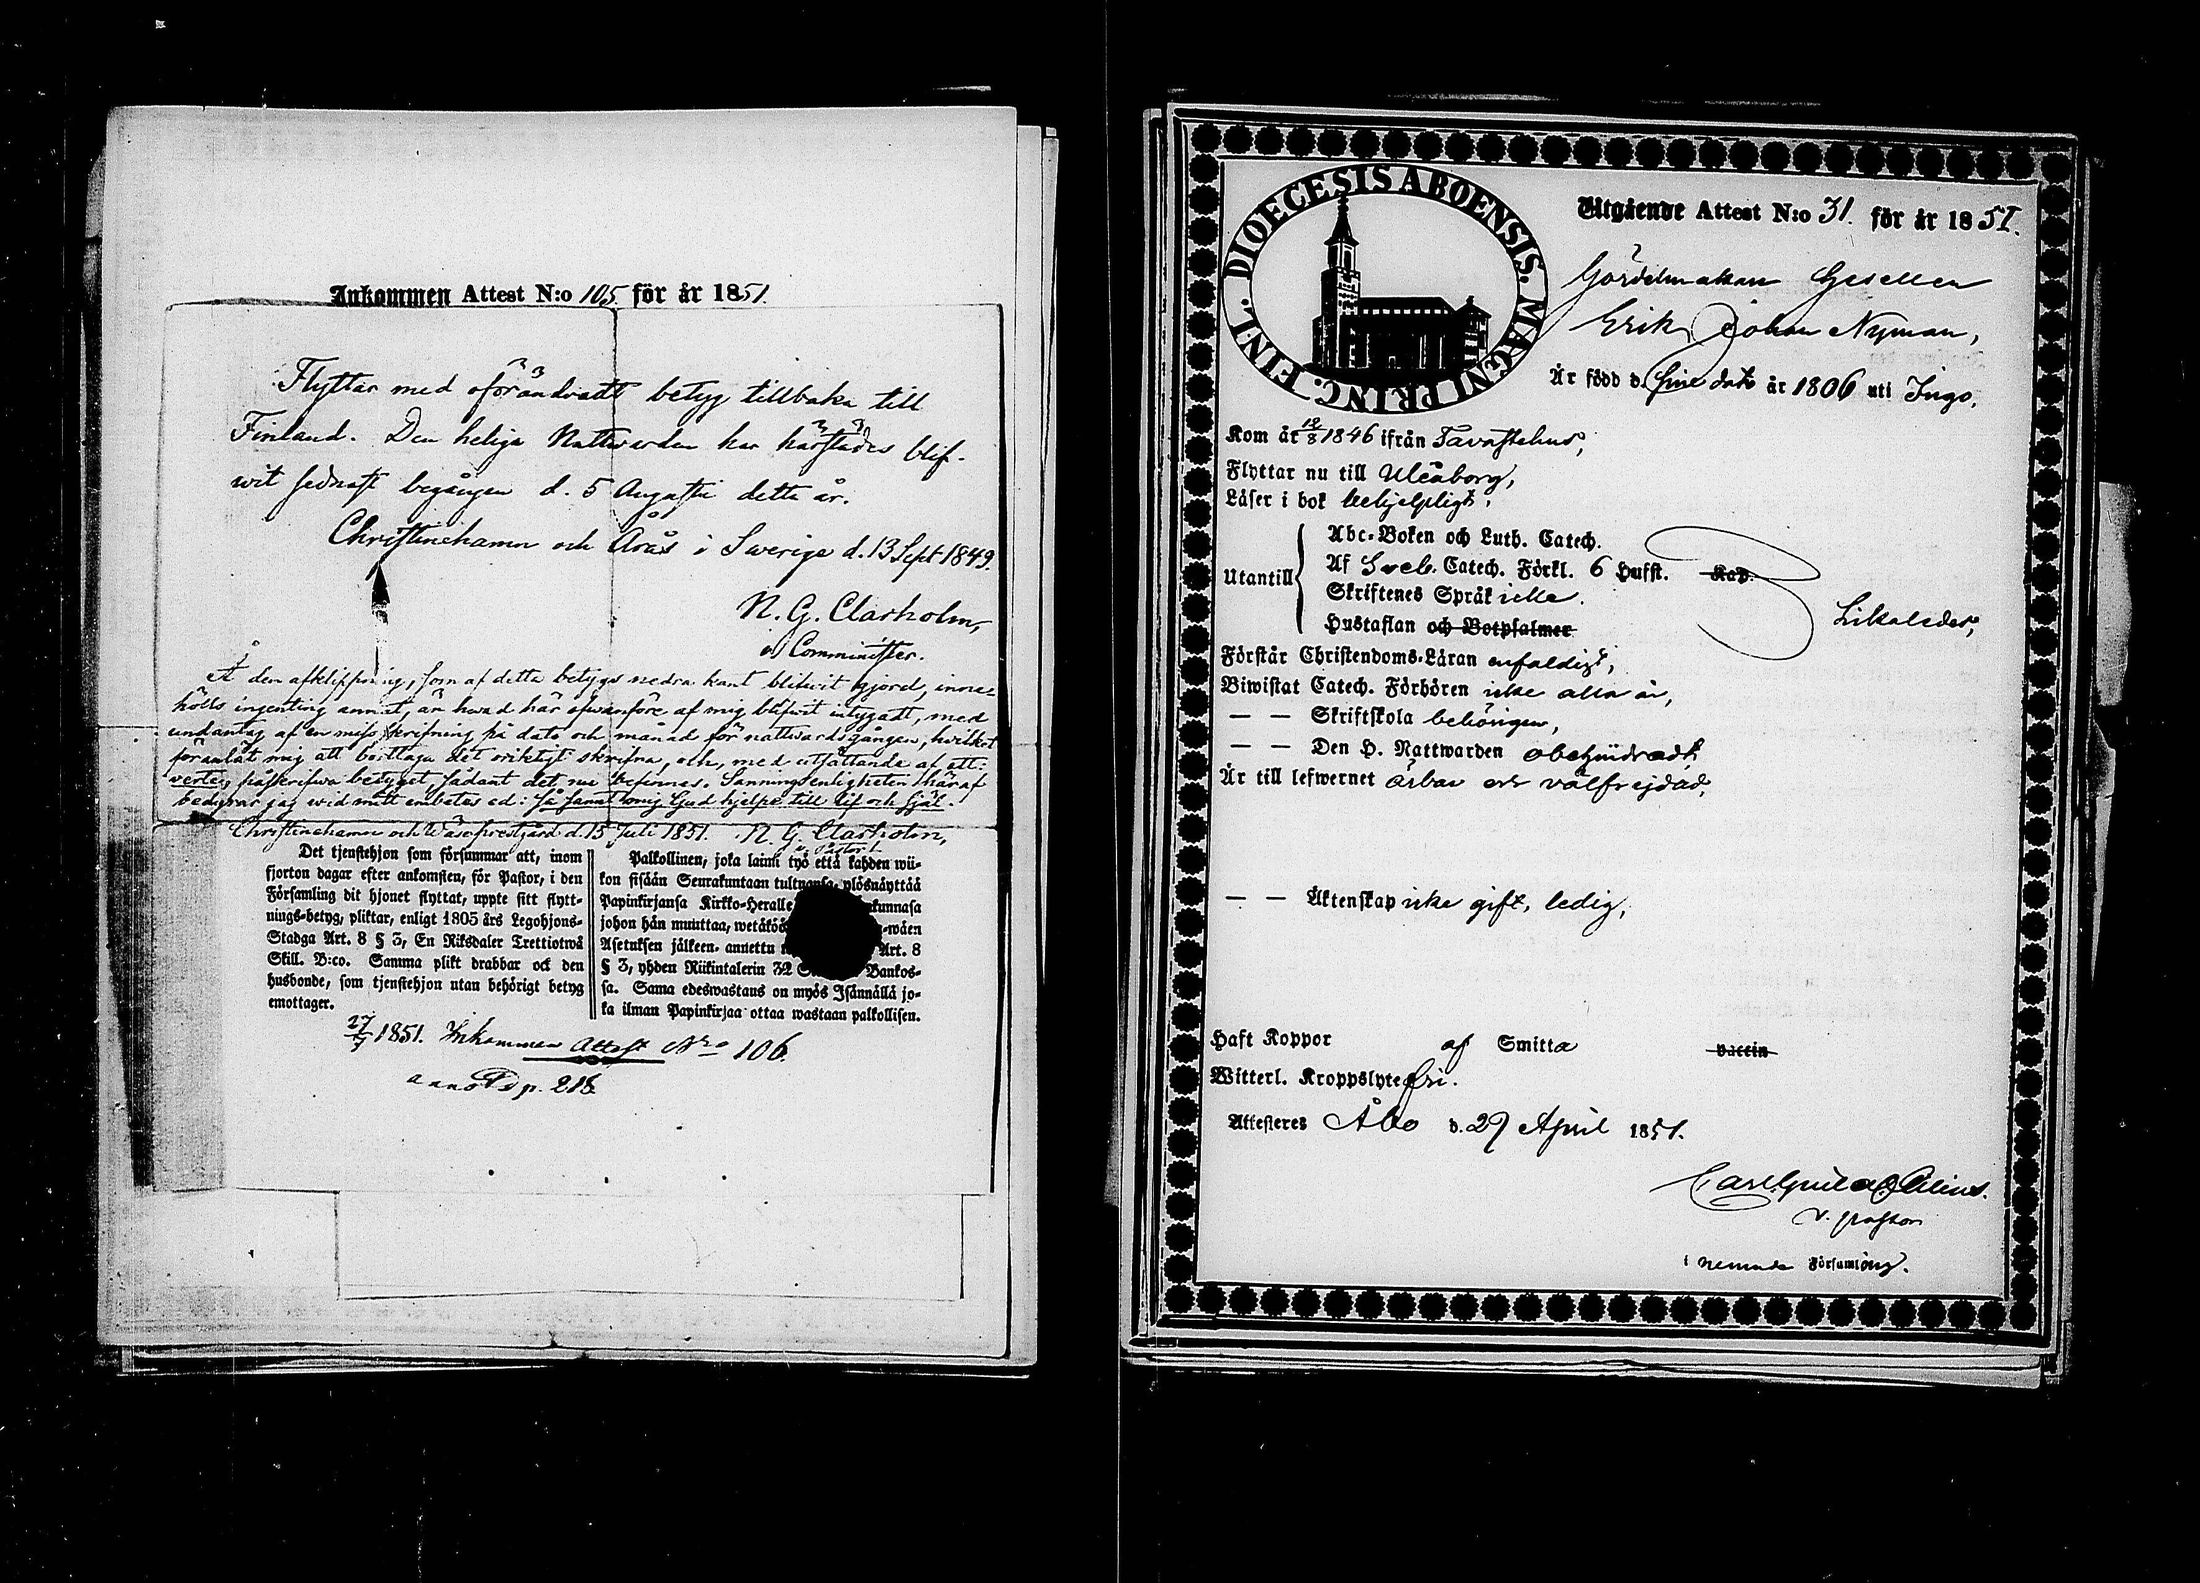 Ankommen Attest N:o 105. för år 1851.
Flyttar med oförändradt betyg tillbaka till
Finland. Den heliga Nattwarden har härstädes blif-
wit sednast begången d. 5 Augusti detta år.
Christinehamn och Årås i Swerige d. 13 Sept 1849.
N. G. Clarholm,
Comminister.
Å den afklippning, som af detta betygs nedra kant blifwit gjord, inne-
hölls ingenting annat, än hwad här ofwanföre af mig blifwit intygadt, med
undantag af en misskrifning på dato och månad för nattwardsgången, hvilket
föranlåt mig att borttaga det oriktigt skrifna, och, med utsättande af att:
verteg, påskrifwa betyget sådant det nu befinnes. Sanningsenligheten häraf
bedyrar jag wid mitt embetes ed: så sannt mig Gud hjelpe till lif och själ.
Christinehamn och Wäse prestgård d. 15 Juli 1851. N. G. Clarholm,
v. Pastor
Det tjenstehjon som försummar att, inom
fjorton dagar efter ankomsten, för Pastor, i den
Församling dit hjonet flyttat, uppte sitt flytt-
nings-betyg, pliktar, enligt 1805 års Legohjons-
Stadga Art. 8 § 3, En Riksdaler Trettiotwå
Skill. B:co. Samma plikt drabbar ock den
husbonde, som tjenstehjon utan behörigt betyg
emottager.
Palkollinen, joka laimi työ että kahden wii-
kon sisään Seurakuntaan tultuansa, ylösnäyttää
Papinkirjansa Kirkko-Heralle kunnasa
johon hän muuttaa, wetäköö -wäen
Asetuksen jälkeen, annettu Art. 8
§ 3, yhden Riikintalerin 32 Bankos-
sa. Sama edeswastaus on myös Isännällä jo-
ka ilman Papinkirjaa ottaa wastaan palkollisen.
27/7 1851. Inkommen Attest Nro 106.
p. 218
DIOECESIS ABOENSIS. MAGNI PRINC. FINL.
Utgående Attest N:o 31. för år 1851.
Gördelmakare Gesellen
Erik Johan Nyman,
Är född d. sine dato år 1806 uti Ingo,
Kom år 19/8 1846 ifrån Tavastehus,
Flyttar nu till Uleåborg,
Läser i bok behjelpligt,
Utantill
Abc-Boken och Luth. Catech.
Af Sveb. Catech. Förkl. 6 Hufst. Kap.
Skriftenes Språk icke.
Hustaflan och Botpsalmer
Likaledes,
Förstår Christendoms-Läran enfaldigt,
Biwistat Catech. Förhören icke alla år,
— — Skriftskola behörigen,
— — Den H. Nattwarden obehindradt
Är till lefwernet ärbar och välfrejdad,
— — Äktenskap icke gift, ledig,
Haft Koppor af Smitta vaccin
Witterl. Kroppslyte fri.
Attesteres Åbo d. 29 April 1851.
v. pastor
i nemnde Församling.